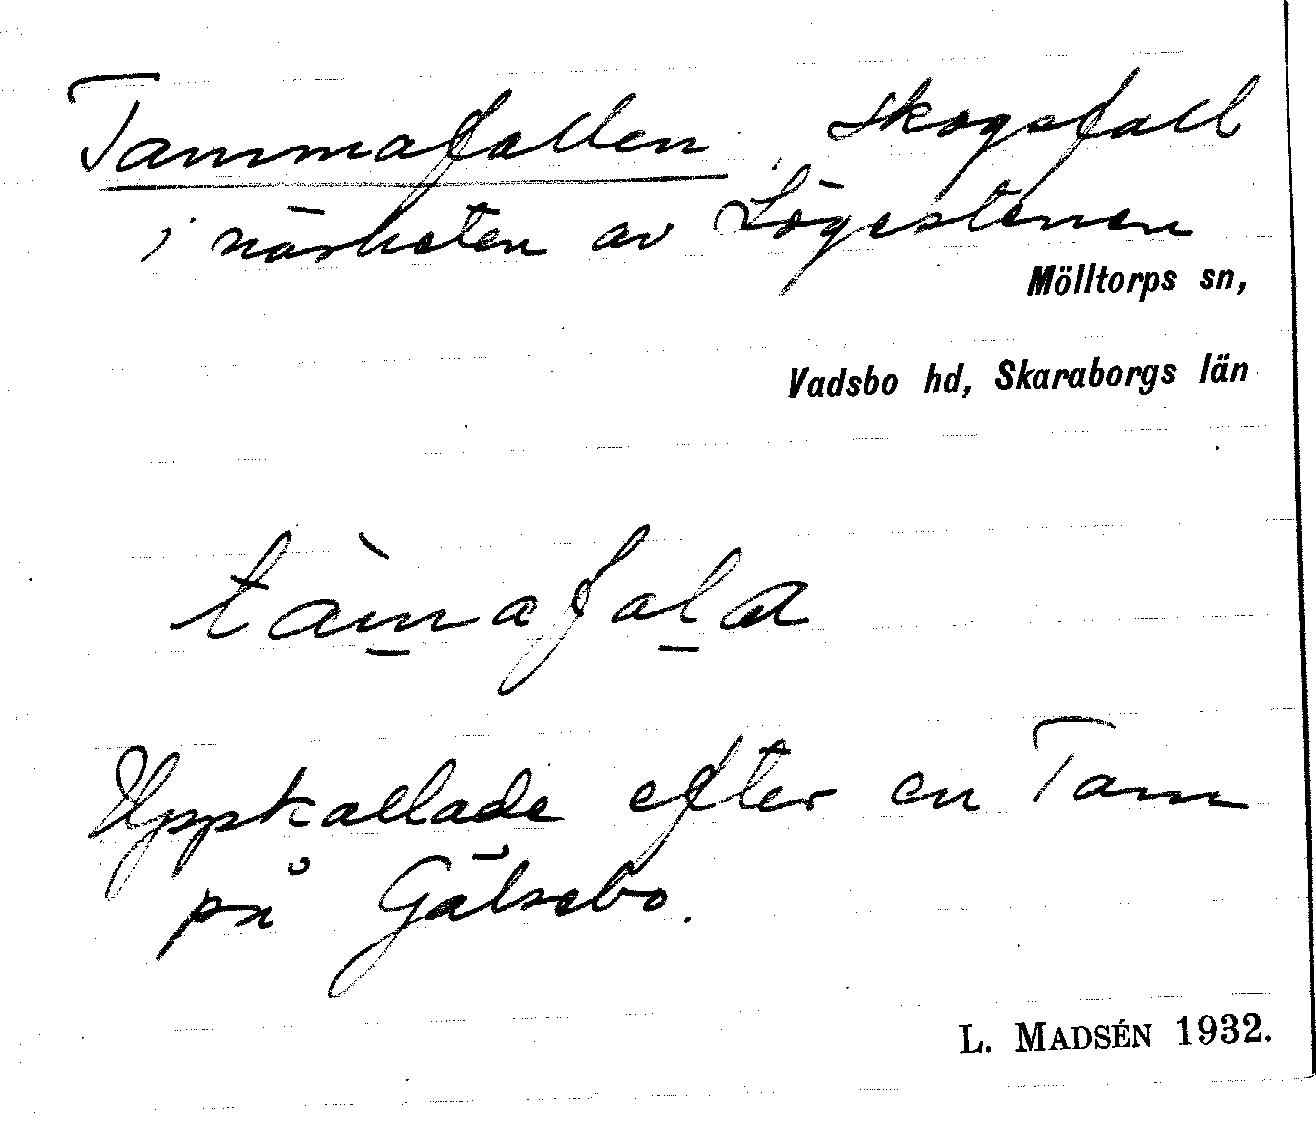 Tammafallen, skogsfall
i närheten av Lögestenen
Mölltorps sn,
Vadsbo hd, Skaraborgs län
tàm̲afal̲a
Uppkallade efter en Tam
på Gälsebo.
L. MADSÉN 1932.